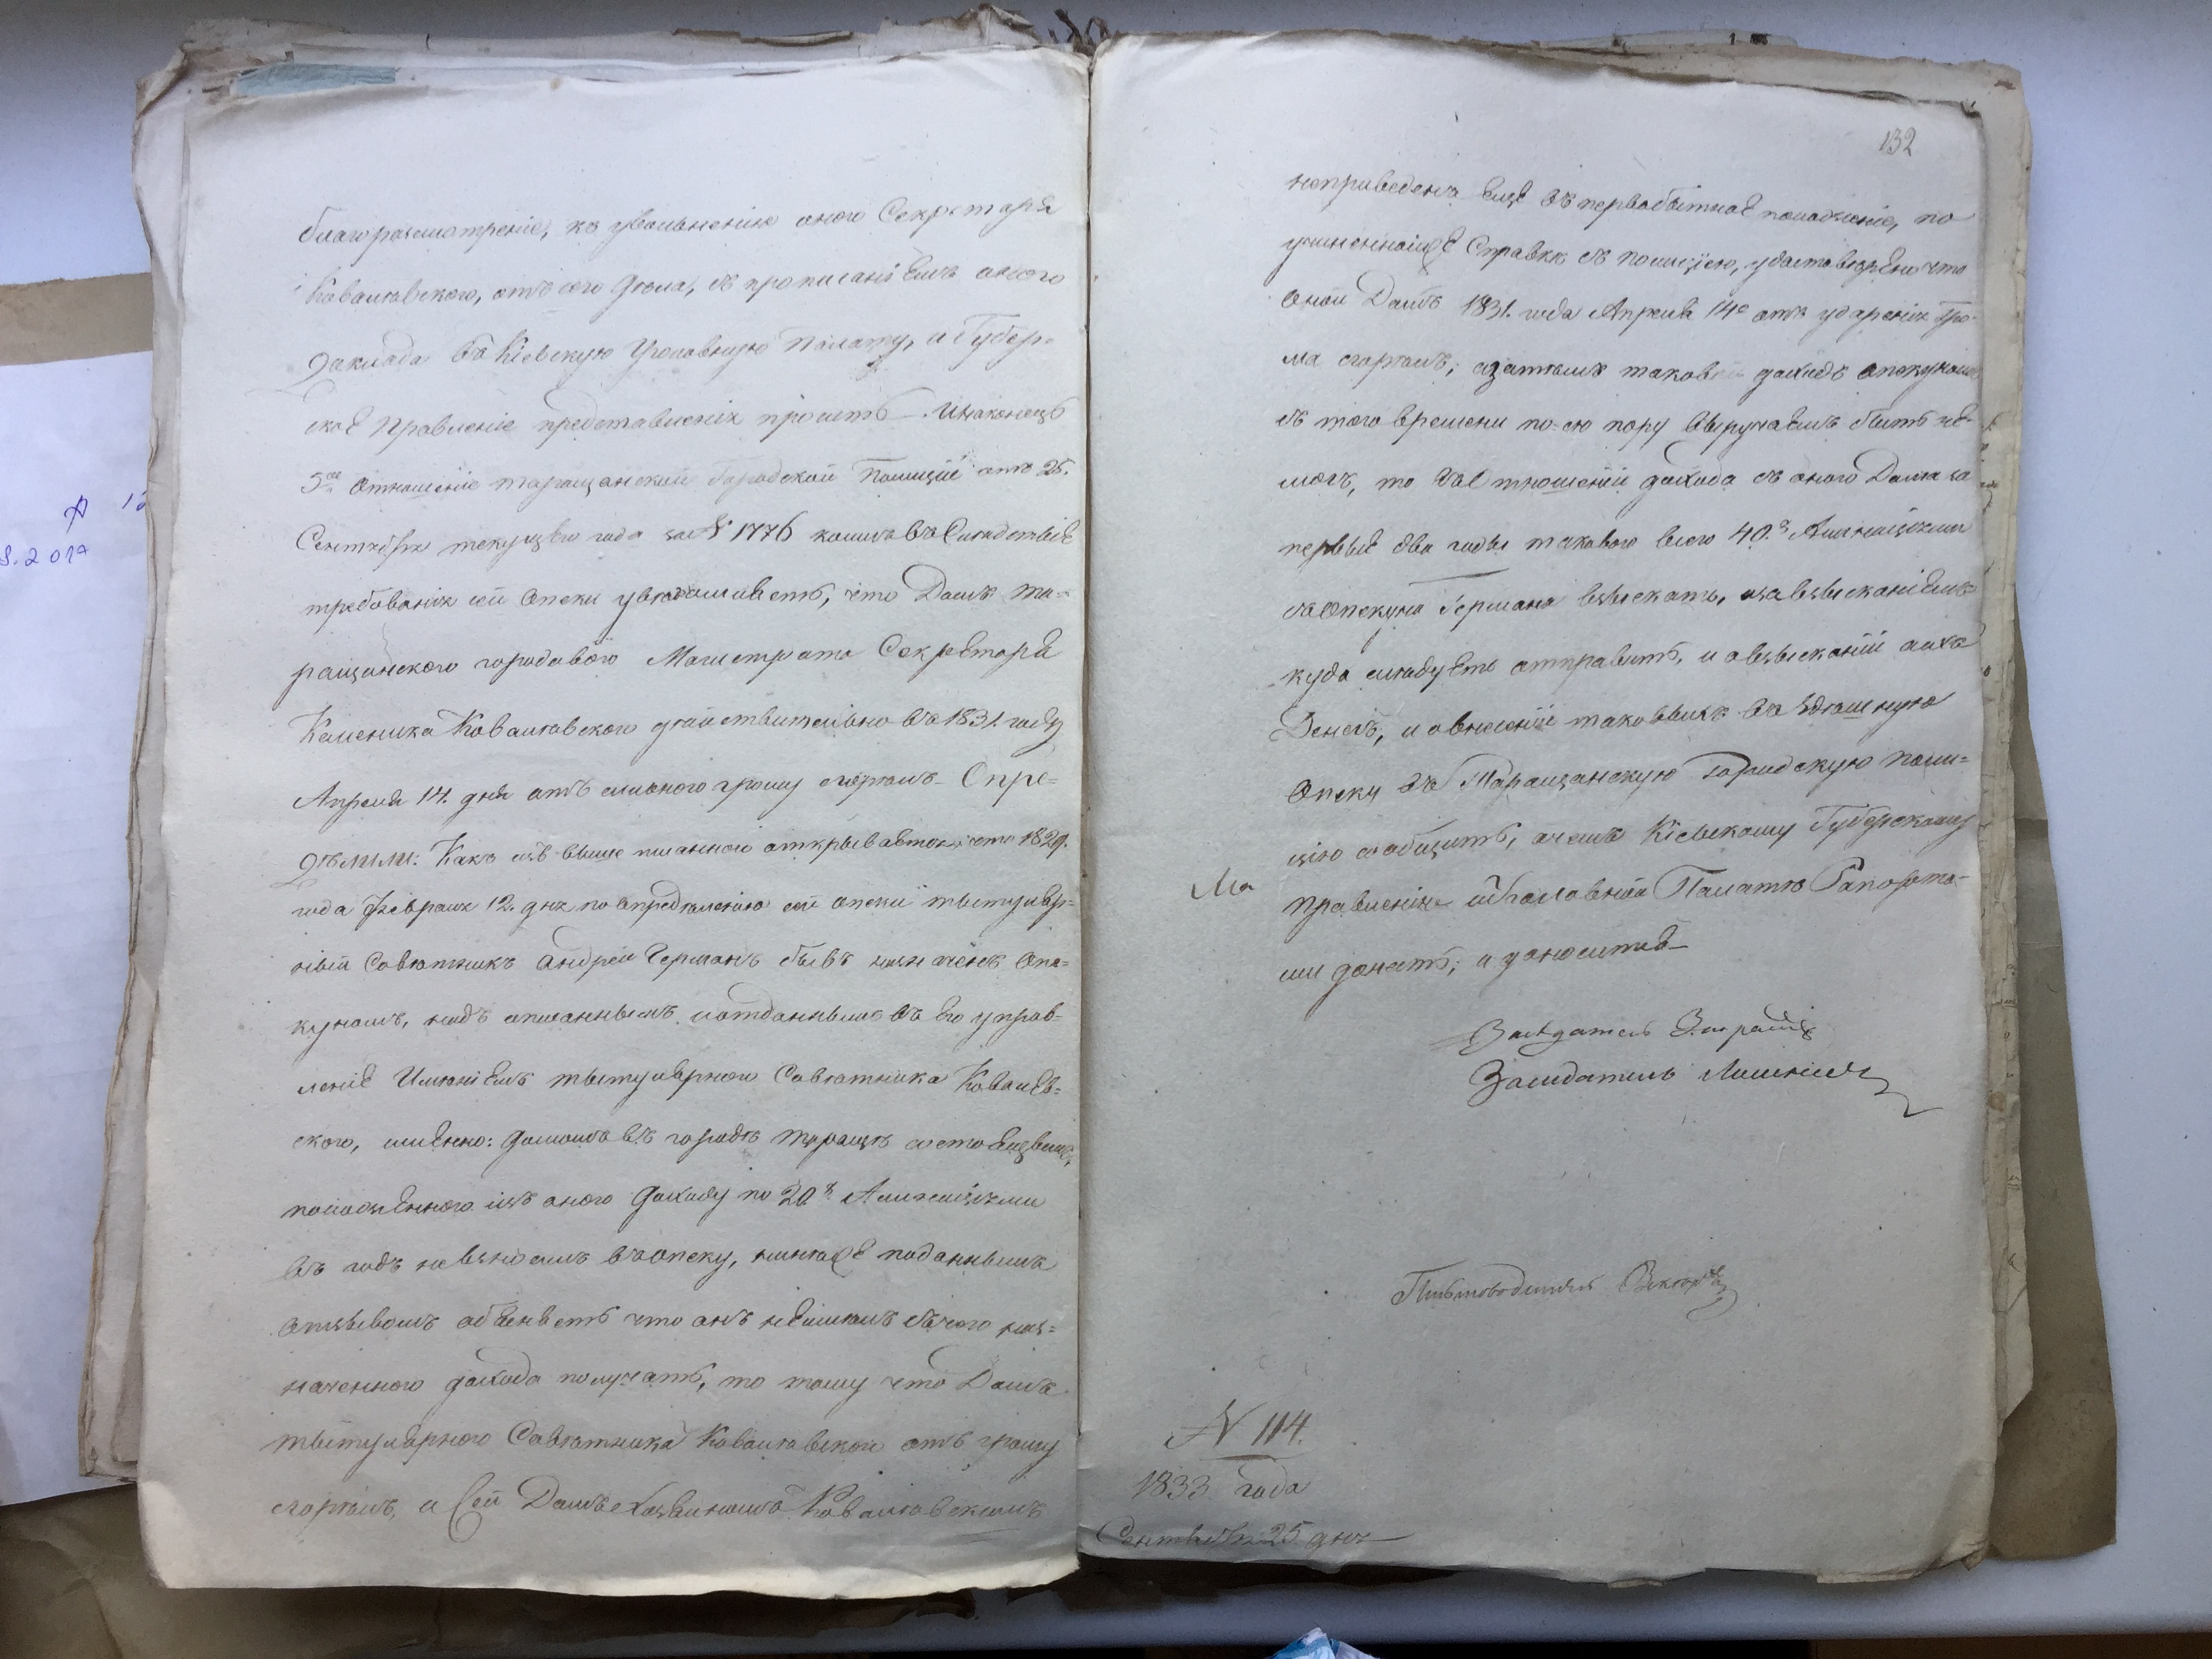 благоразсмотреніе, къ увольненію оного Секретаря
Ковалювского, отъ сего дѣла, съ прописаніемъ оного
доклада въ Кіевскую Уголовную Палату, и Губер-
ское Правленіе представленія просить. И наконецъ
5ое Отношеніе таращанской Городской Полиціи отъ 25.
Сентября текущего года за № 1776 коимъ въ Слѣдствіе
требованія сей Опеки увѣдомляетъ, что Домъ та-
ращанского городового Магистрата Секретаря
Каменика Ковалювского дѣйствительно въ 1831. году
Апреля 14. дня отъ сильного грому сгорѣлъ. Опре-
дѣлили: Какъ изъ выше писанного открывается, что 1829.
года Февраля 12. дня по опредѣленію сей опеки тытуляр-
ный Совѣтникъ Андрей Германъ бывъ назначенъ Опе-
куномъ, надъ описаннымъ и отданнымъ въ Его управ-
леніе Имѣніемъ тытулярного Совѣтника Ковалев-
ского, именно: домомъ въ городѣ таращѣ состоящемъ,
положенного изъ оного доходу по 20 р. Ассигнаціями
въ годъ не взносилъ въ опеку, нынѣ же поданнымъ
отзывомъ объявляетъ что онъ не имѣлъ съ чего наз-
наченного дохода получать, по тому что Домъ
тытулярного Совѣтника Ковалювского отъ грому
сгорѣлъ, и Сей Домъ Хозяиномъ Ковалювскимъ
132
неприведенъ Еще въ первобытное положеніе, по
учиненной же Справкѣ съ полиціею, удостовѣрено что
оной Домъ 1831. года Апреля 14о отъ ударенія гро-
ма сгорѣлъ; а затѣмъ таковый доходъ опекуномъ
съ того времени по сю пору выручаемъ быть не-
могъ, то въ Отношеніи дохода съ оного Дома за
первые два годы такового всего 40 р. Ассигнаціями
съ Опекуна Германа взыскать, и за взысканіемъ
куда слѣдуетъ отправить, и о взысканіи сихъ
Денегъ, и о внесеніи таковыхъ въ здѣшнюю
Опеку въ Таращанскую Городскую поли-
цію сообщить, о чемъ Кіевскому Губерскому
правленію и Уголовной Палатѣ Рапорта-
ми донесть; и доносится
Засѣдатель
Засидатель
Письмоводитель
№ 114.
1833 года
Сентября 25 дня